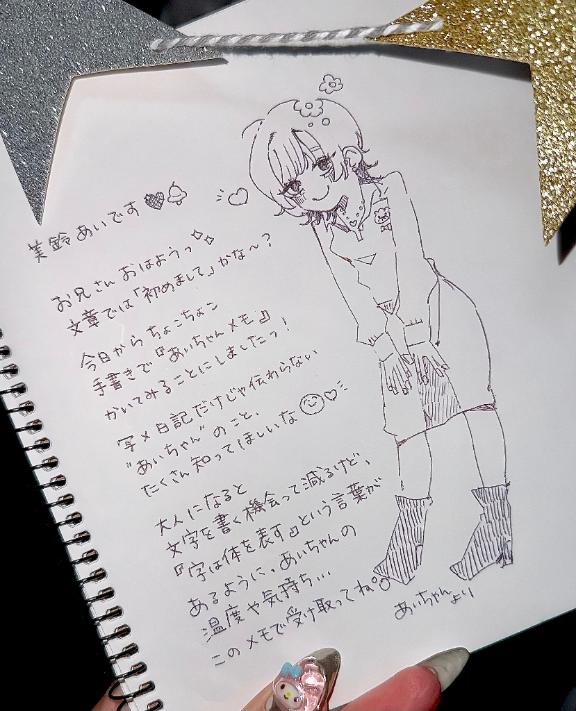 美鈴あいです
お兄さんおはようっ
文章では「初めまして」かな～?
今日からちょこちょこ
手書きで『あいちゃんメモ』
かいてみることにしましたっ!
写メ日記だけじゃ伝わらない
"あいちゃん"のこと、
たくさん知ってほしいな
大人になると
文字を書く機会って減るけど、
『字は体を表す』という言葉が
あるように、あいちゃんの
温度や気持ち...
このメモで受け取ってね。
あいちゃん
より